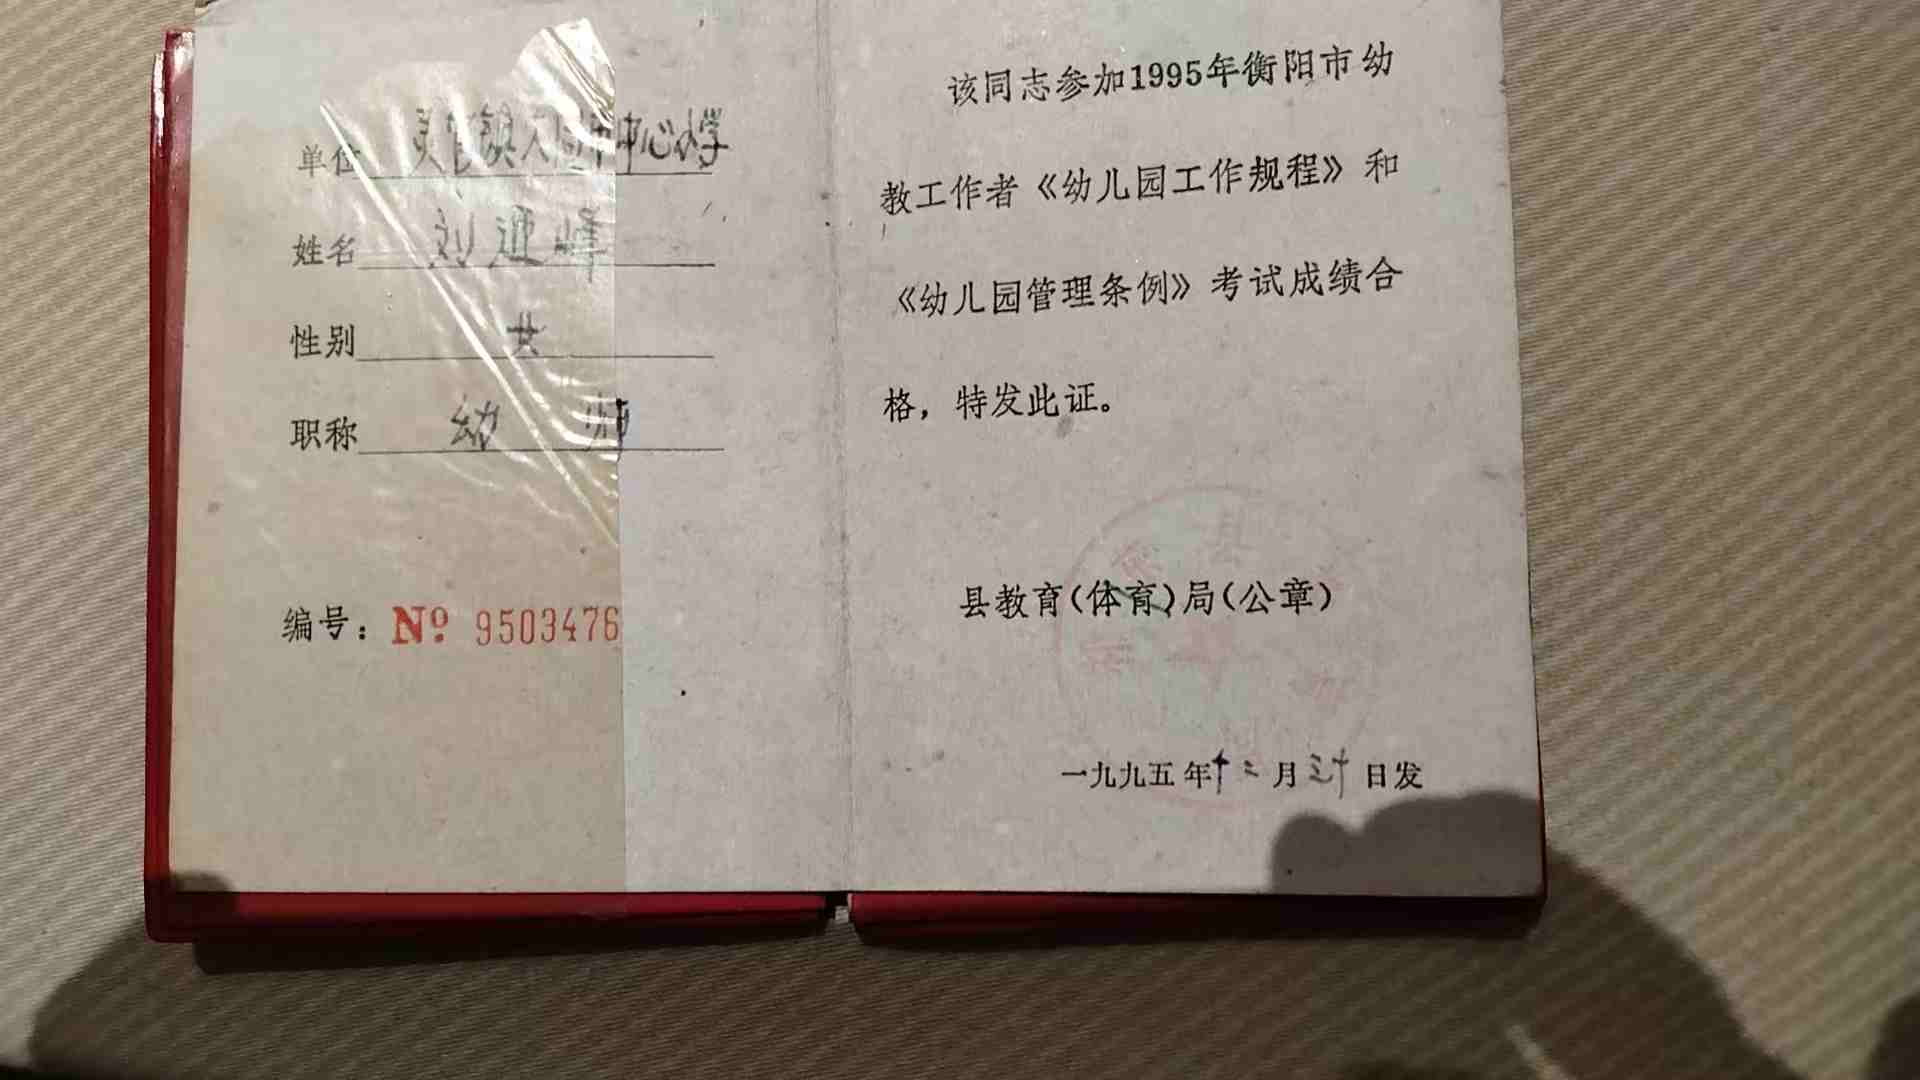 单位 灵官镇人民中心小学
姓名 刘迎峰
性别 女
职称 幼师
编号：№ 9503476
该同志参加1995年衡阳市幼
教工作者《幼儿园工作规程》和
《幼儿园管理条例》考试成绩合
格，特发此证。
县教育(体育)局(公章)
一九九五年十二月三十日发